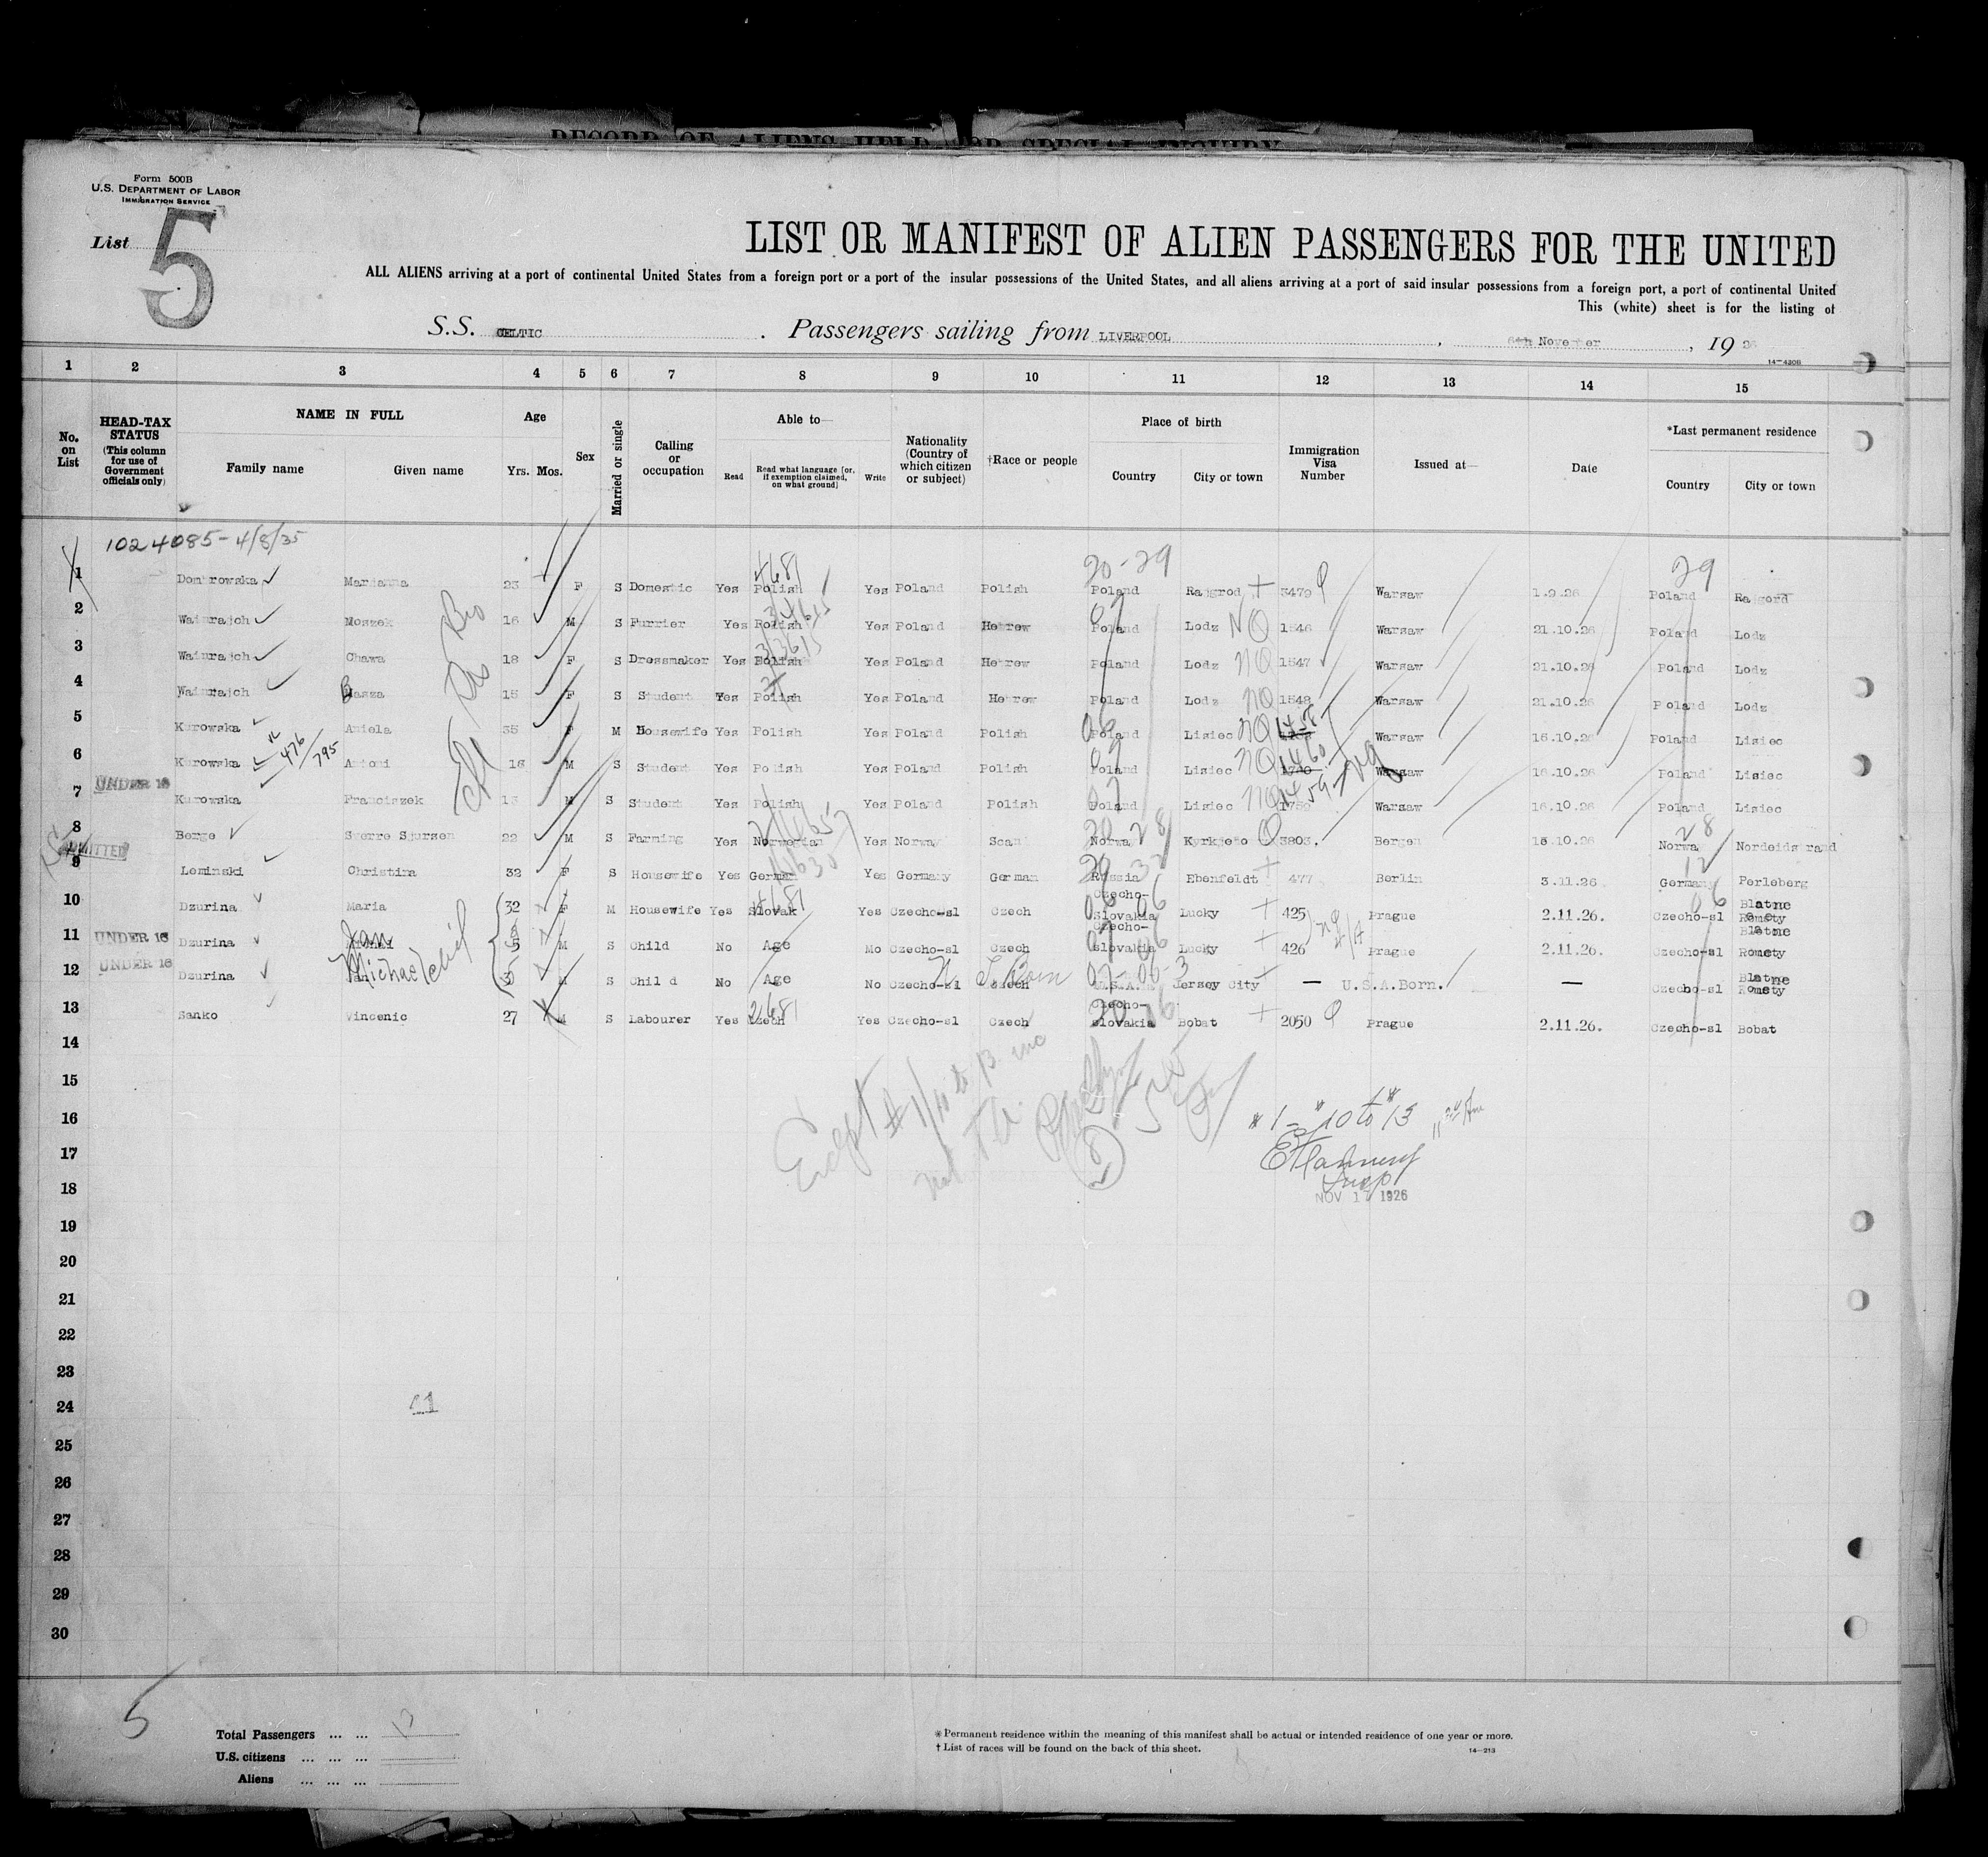 RECORD OF ALIENS HELD FOR SPECIAL INQUIRY
Form 500B
U.S. DEPARTMENT OF LABOR
IMMIGRATION SERVICE
List 5
LIST OR MANIFEST OF ALIEN PASSENGERS FOR THE UNITED
ALL ALIENS arriving at a port of continental United States from a foreign port or a port of the insular possessions of the United States, and all aliens arriving at a port of said insular possessions from a foreign port, a port of continental United
This (white) sheet is for the listing of
S.S. CELTIC . Passengers sailing from LIVERPOOL , 6th November , 19 26
14-420B
1 2 3 4 5 6 7 8 9 10 11 12 13 14 15
No. on List
HEAD-TAX STATUS (This column for use of Government officials only)
NAME IN FULL Family name Given name
Age Yrs. Mos.
Sex
Married or single
Calling or occupation
Able to— Read Read what language (or, if exemption claimed, on what ground) Write
Nationality (Country of which citizen or subject)
†Race or people
Place of birth Country City or town
Immigration Visa Number
Issued at—
Date
*Last permanent residence Country City or town
1024085-4/8/35
20-29 29
1 Dombrowska Marianna 23 F S Domestic Yes Polish Yes Poland Polish Poland Radgrod 3479 Warsaw 1.9.26 Poland Radgord
2 Wajnrajch Moszek 16 M S Furrier Yes Polish Yes Poland Hebrew Poland Lodz NQ 1546 Warsaw 21.10.26 Poland Lodz
3 Wajnrajch Chawa 18 F S Dressmaker Yes Polish Yes Poland Hebrew Poland Lodz NQ 1547 Warsaw 21.10.26 Poland Lodz
4 Wajnrajch Basza 15 F S Student Yes Polish Yes Poland Hebrew Poland Lodz NQ 1548 Warsaw 21.10.26 Poland Lodz
5 Kurowska Aniela 35 F M Housewife Yes Polish Yes Poland Polish Poland Lisiec NQ 1458 Warsaw 16.10.26 Poland Lisiec
6 Kurowska 476/795 Antoni 16 M S Student Yes Polish Yes Poland Polish Poland Lisiec NQ 1460 Warsaw 16.10.26 Poland Lisiec
UNDER 16
7 Kurowska Franciszek 13 M S Student Yes Polish Yes Poland Polish Poland Lisiec NQ 1459 Warsaw 16.10.26 Poland Lisiec
8 Berge Sverre Sjursen 22 M S Farming Yes Norwegian Yes Norway Scan Norway Kyrkjebo 3803. Bergen 15.10.26 Norway Nordeidstrand
ADMITTED
9 Leminski Christina 32 F S Housewife Yes German Yes Germany German Russia Ebenfeldt 477 Berlin 3.11.26 Germany Perleberg
10 Dzurina Maria 32 F M Housewife Yes Slovak Yes Czecho-sl Czech Czecho-Slovakia Lucky 425 Prague 2.11.26. Czecho-sl Blatne Romety
11 UNDER 16 Dzurina Jan 5 M S Child No Age No Czecho-sl Czech Czecho-Slovakia Lucky 426 Prague 2.11.26. Czecho-sl Blatne Romety
12 UNDER 16 Dzurina Michael M S Child No Age No Czecho-sl Czech U.S.A. Jersey City — U.S.A.Born. — Czecho-sl Blatne Romety
13 Sanko Vincenic 27 M S Labourer Yes Czech Yes Czecho-sl Czech Czecho-Slovakia Bobat 2050 Prague 2.11.26. Czecho-sl Bobat
14
15
Except # 1/10 to 13 inc
16 #1-#10 to #13
17
18
NOV 17 1926
19
20
21
22
23
24
25
26
27
28
29
30
5
Total Passengers ... ... 13
U.S. citizens ... ... ...
Aliens ... ... ...
*Permanent residence within the meaning of this manifest shall be actual or intended residence of one year or more.
† List of races will be found on the back of this sheet.
14-213